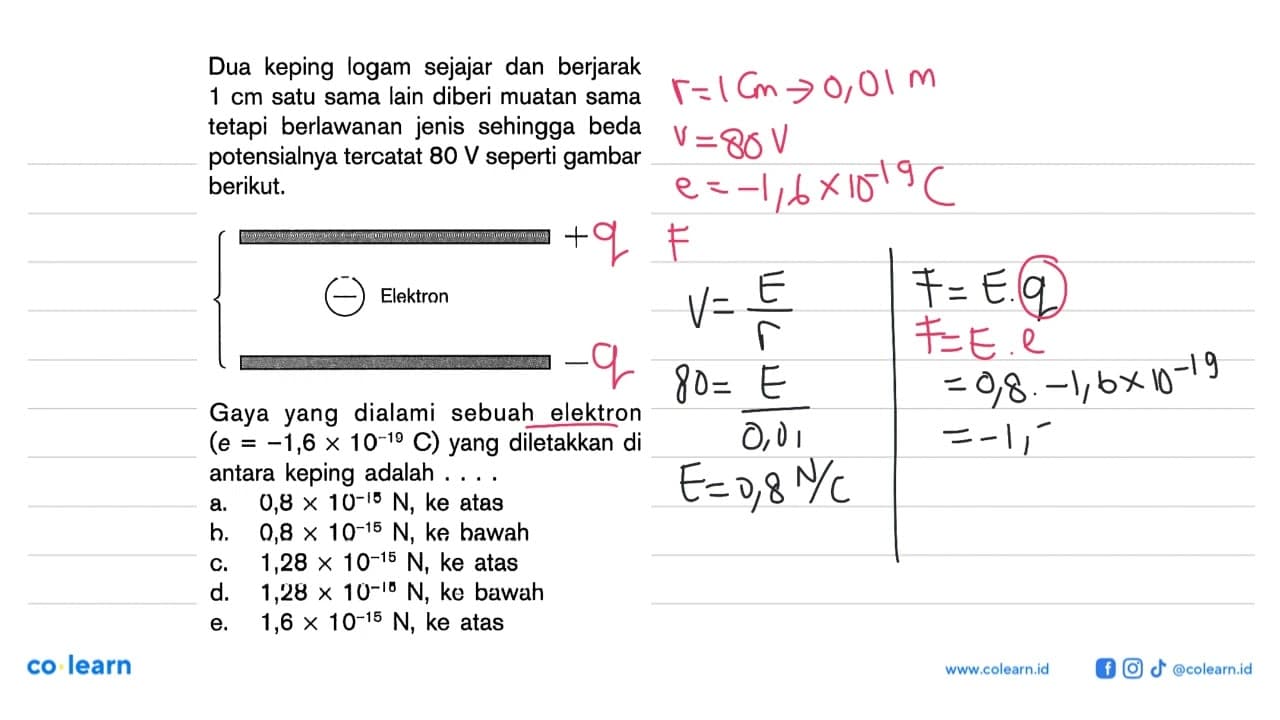 Dua keping logam sejajar dan berjarak
1 cm satu sama lain diberi muatan sama
tetapi berlawanan jenis sehingga beda
potensialnya tercatat 80 V seperti gambar
berikut.
+q
− Elektron
−q
Gaya yang dialami sebuah elektron
(e = −1,6 × 10⁻¹⁹ C) yang diletakkan di
antara keping adalah . . . .
a. 0,8 × 10⁻¹⁵ N, ke atas
b. 0,8 × 10⁻¹⁵ N, ke bawah
c. 1,28 × 10⁻¹⁵ N, ke atas
d. 1,28 × 10⁻¹⁵ N, ke bawah
e. 1,6 × 10⁻¹⁵ N, ke atas
r=1 Cm → 0,01 m
V=80 V
e = −1,6 × 10⁻¹⁹ C
F
V= E/r
80= E/0,01
E=0,8 N/C
F= E.q
F=E.e
= 0,8. −1,6 × 10⁻¹⁹
= −1,
co learn
www.colearn.id
@colearn.id